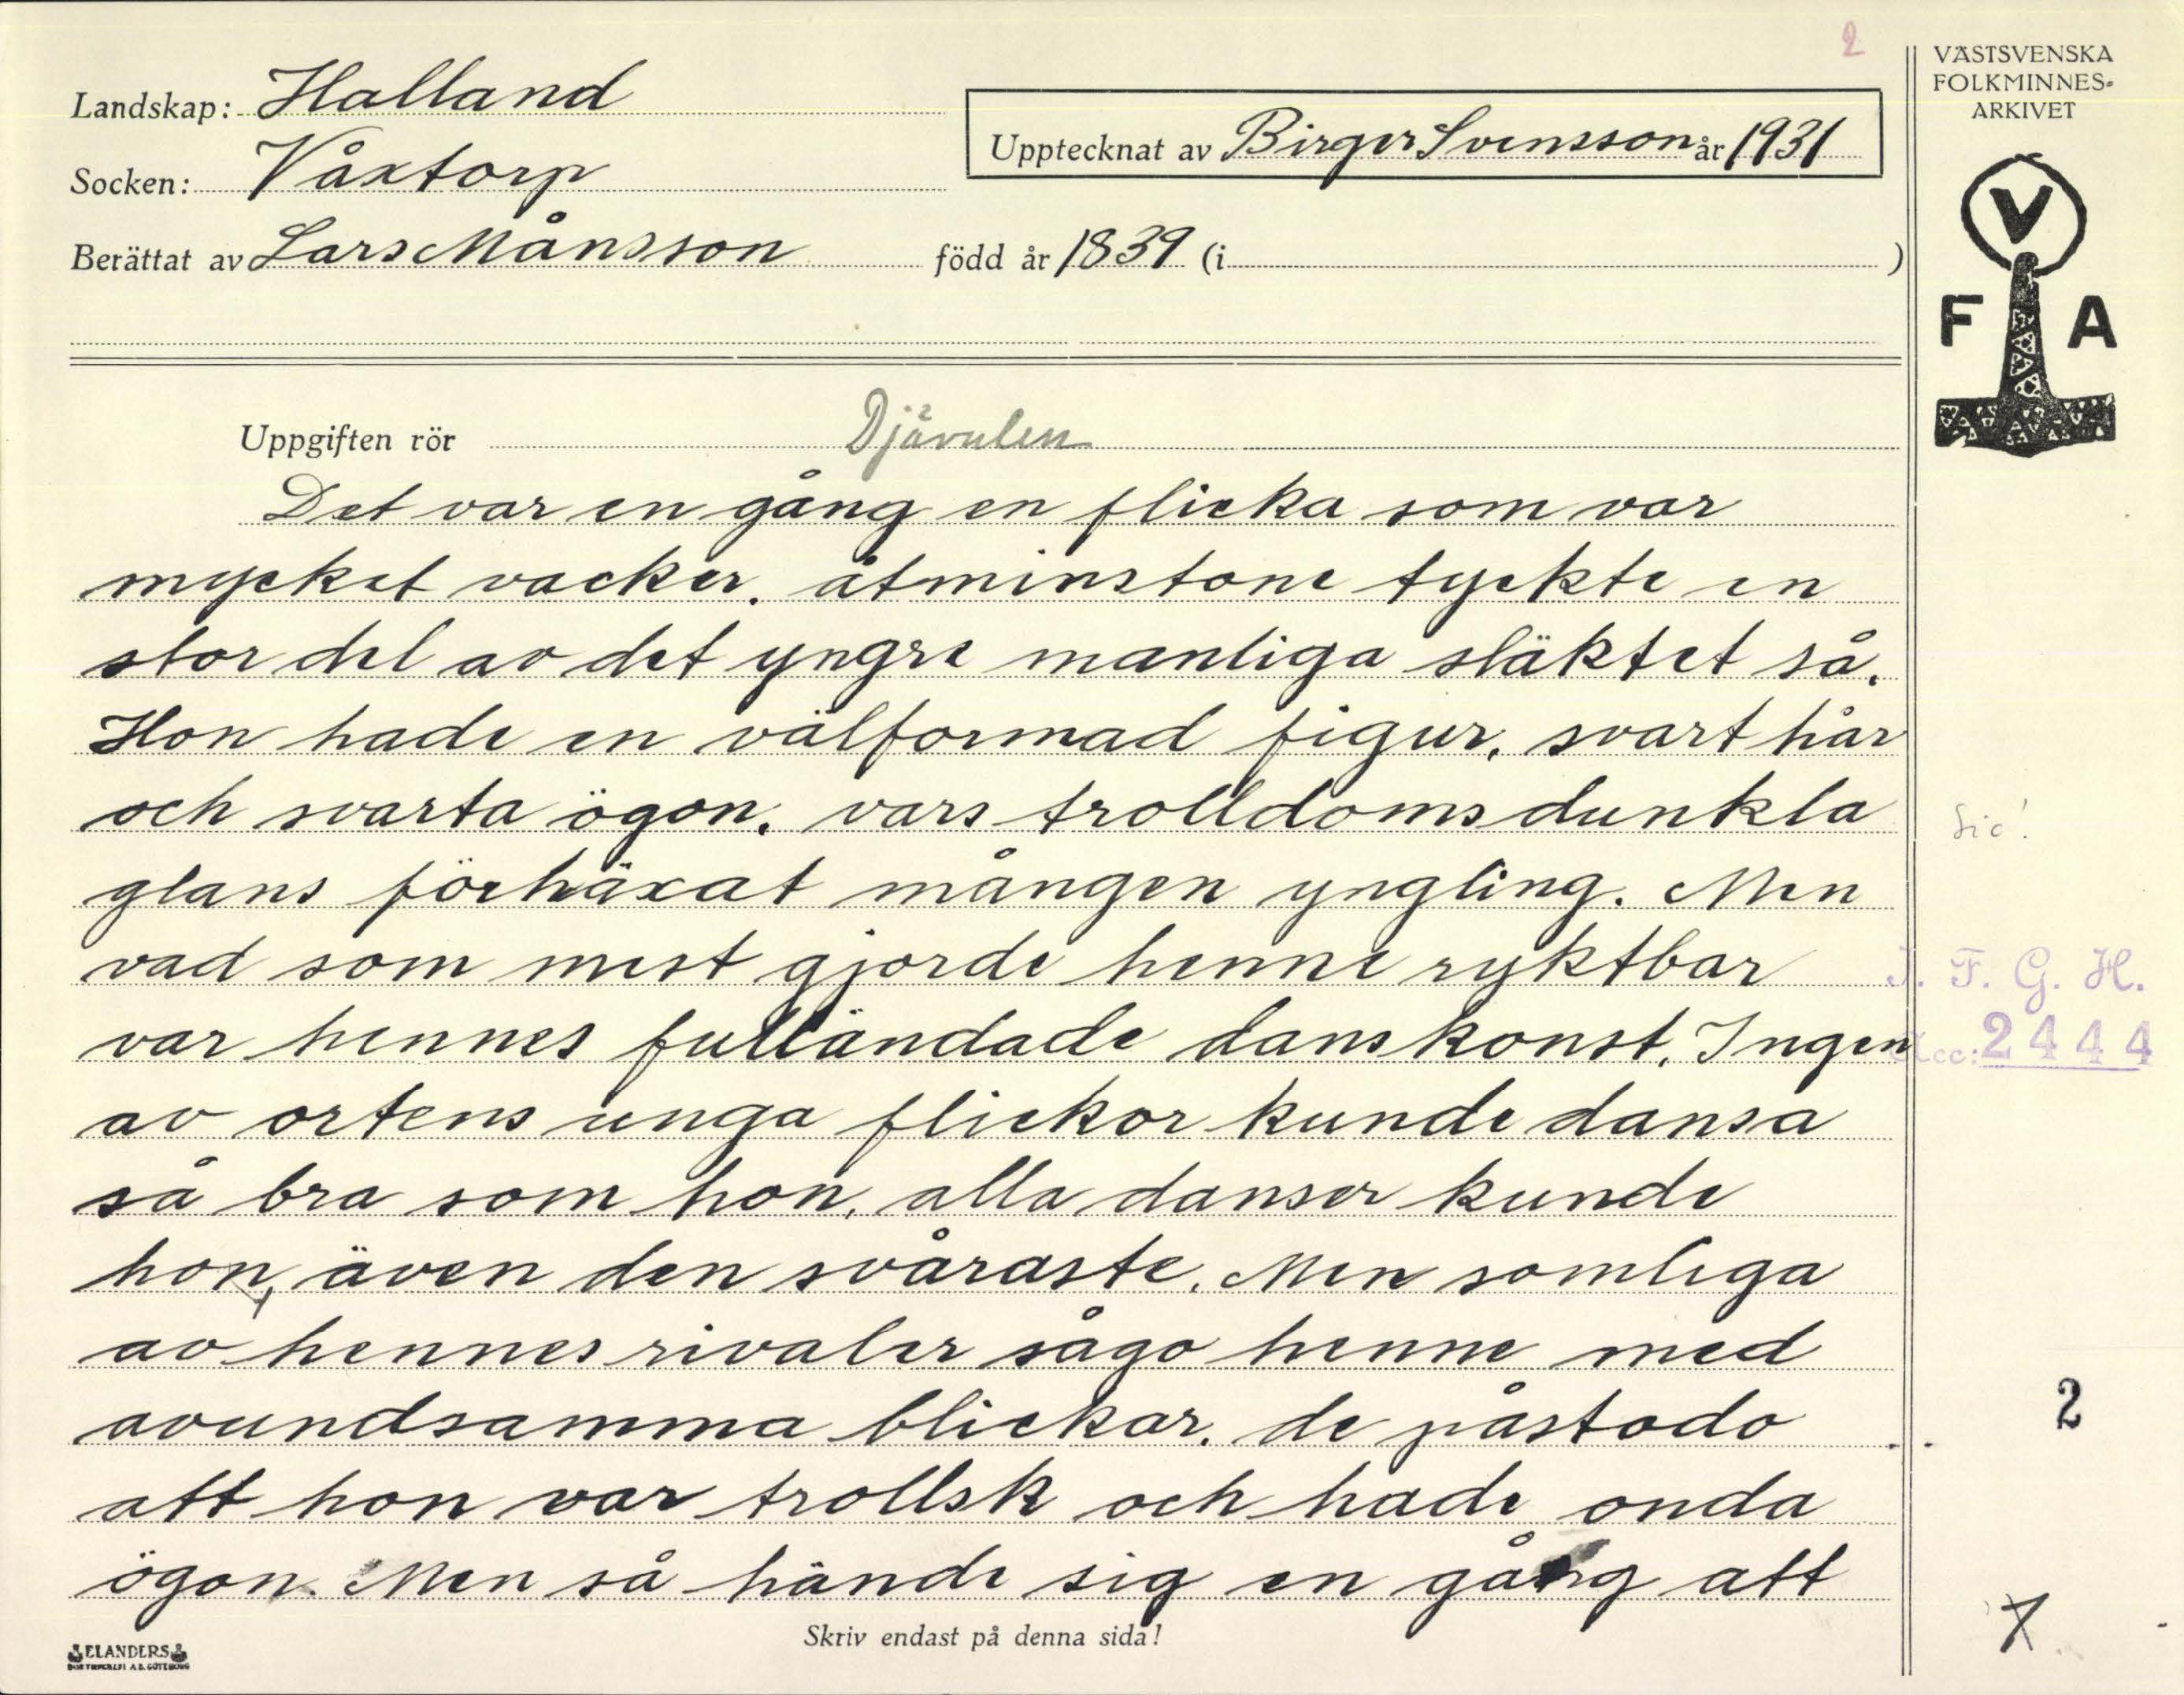 2
Landskap: Halland
Socken: Våxtorp
Berättat av Lars Månsson född år 1839 (i )
Upptecknat av Birger Svensson år 1931
VÄSTSVENSKA
FOLKMINNES-
ARKIVET
V
F A
Uppgiften rör Djävulen
Det var en gång en flicka som var
mycket vacker, åtminstone tyckte en
stor del av det yngre manliga släktet så.
Hon hade en välformad figur, svart hår
och svarta ögon, vars trolldomsdunkla
Sic!
glans förhäxat mången yngling. Men
vad som mest gjorde henne ryktbar
I. F. G. H.
var hennes fulländade danskonst. Ingen
Acc: 2444
av ortens unga flickor kunde dansa
så bra som hon, alla danser kunde
hon, även den svåraste. Men somliga
av hennes rivaler sågo henne med
avundsamma blickar, de påstodo
2
att hon var trollsk och hade onda
ögon. Men så hände sig en gång att
Skriv endast på denna sida!
ELANDERS
BOKTRYCKERI A.B. GÖTEBORG
X